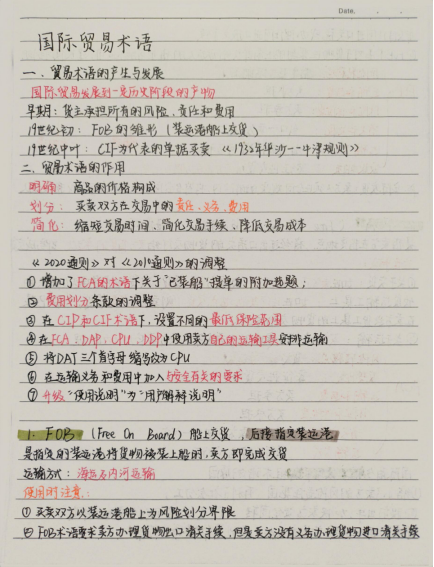 Date.
国际贸易术语
一、贸易术语的产生与发展
国际贸易发展到一定历史阶段的产物
早期：货主承担所有的风险、责任和费用
19世纪初：FOB的雏形（装运港船上交货）
19世纪中叶：CIF为代表的单据买卖《1932年华沙一牛津规则》
二、贸易术语的作用
明确：商品的价格构成
划分：买卖双方在交易中的责任、义务、费用
简化：缩短交易时间、简化交易手续、降低交易成本
《2020通则》对《2010通则》的调整
① 增加了FCA的术语下关于"已装船"提单的附加选题；
② 费用划分条款的调整
③ 在CIP和CIF术语下，设置不同的最低保险范围
④ 在FCA、DAP、CPU、DDP中使用买方自己的运输工具安排运输
⑤ 将DAT三个首字母缩写改为CPU
⑥ 在运输义务和费用中加入与安全有关的要求
⑦ 升级"使用说明"为"用户解释说明"
1. FOB （Free On Board）船上交货，后接指定装运港
是指定的装运港将货物装上船时，卖方即完成交货
运输方式：海运及内河运输
使用时注意：
① 买卖双方以装运港船上为风险划分界限
② FOB术语要求卖方办理货物出口清关手续，但是卖方没有义务办理货物进口清关手续